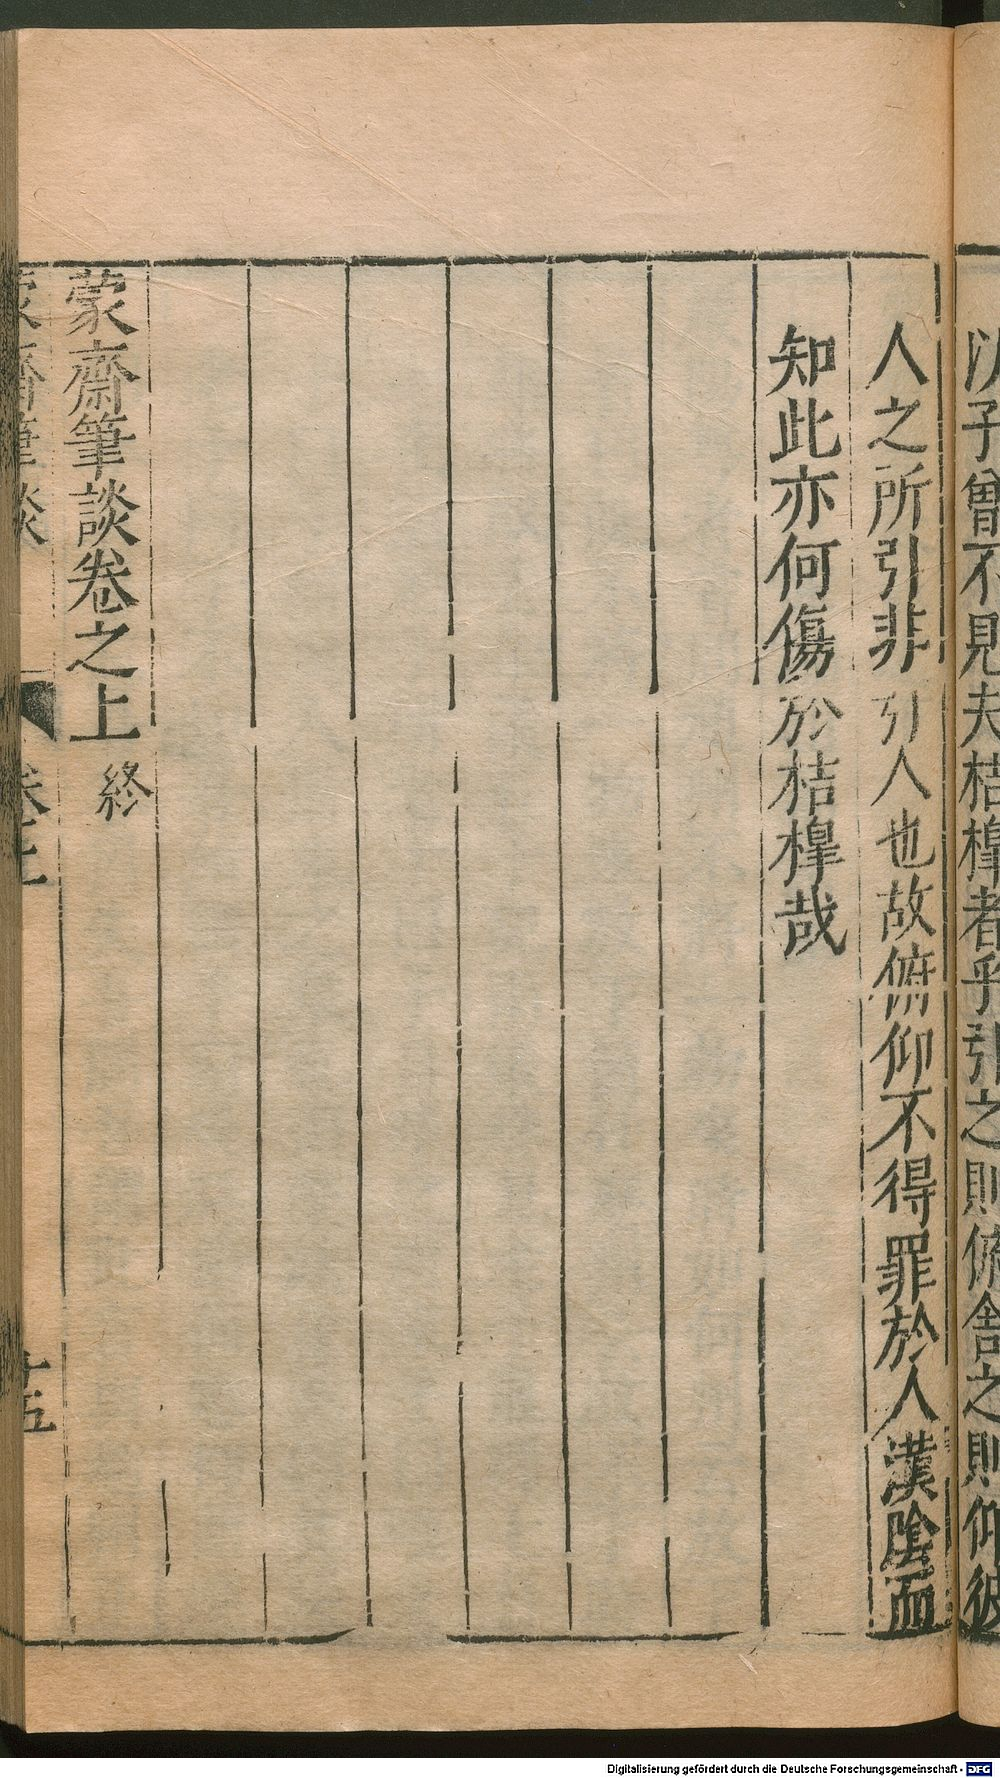 子曾不見夫桔槹者乎引之則俯舍之則仰彼
人之所引非引人也故俯仰不得罪於人漢陰而
知此亦何傷於桔槹哉
蒙齋筆談卷之上 終
蒙齋筆談 卷之上 十五
Digitalisierung gefördert durch die Deutsche Forschungsgemeinschaft - DFG